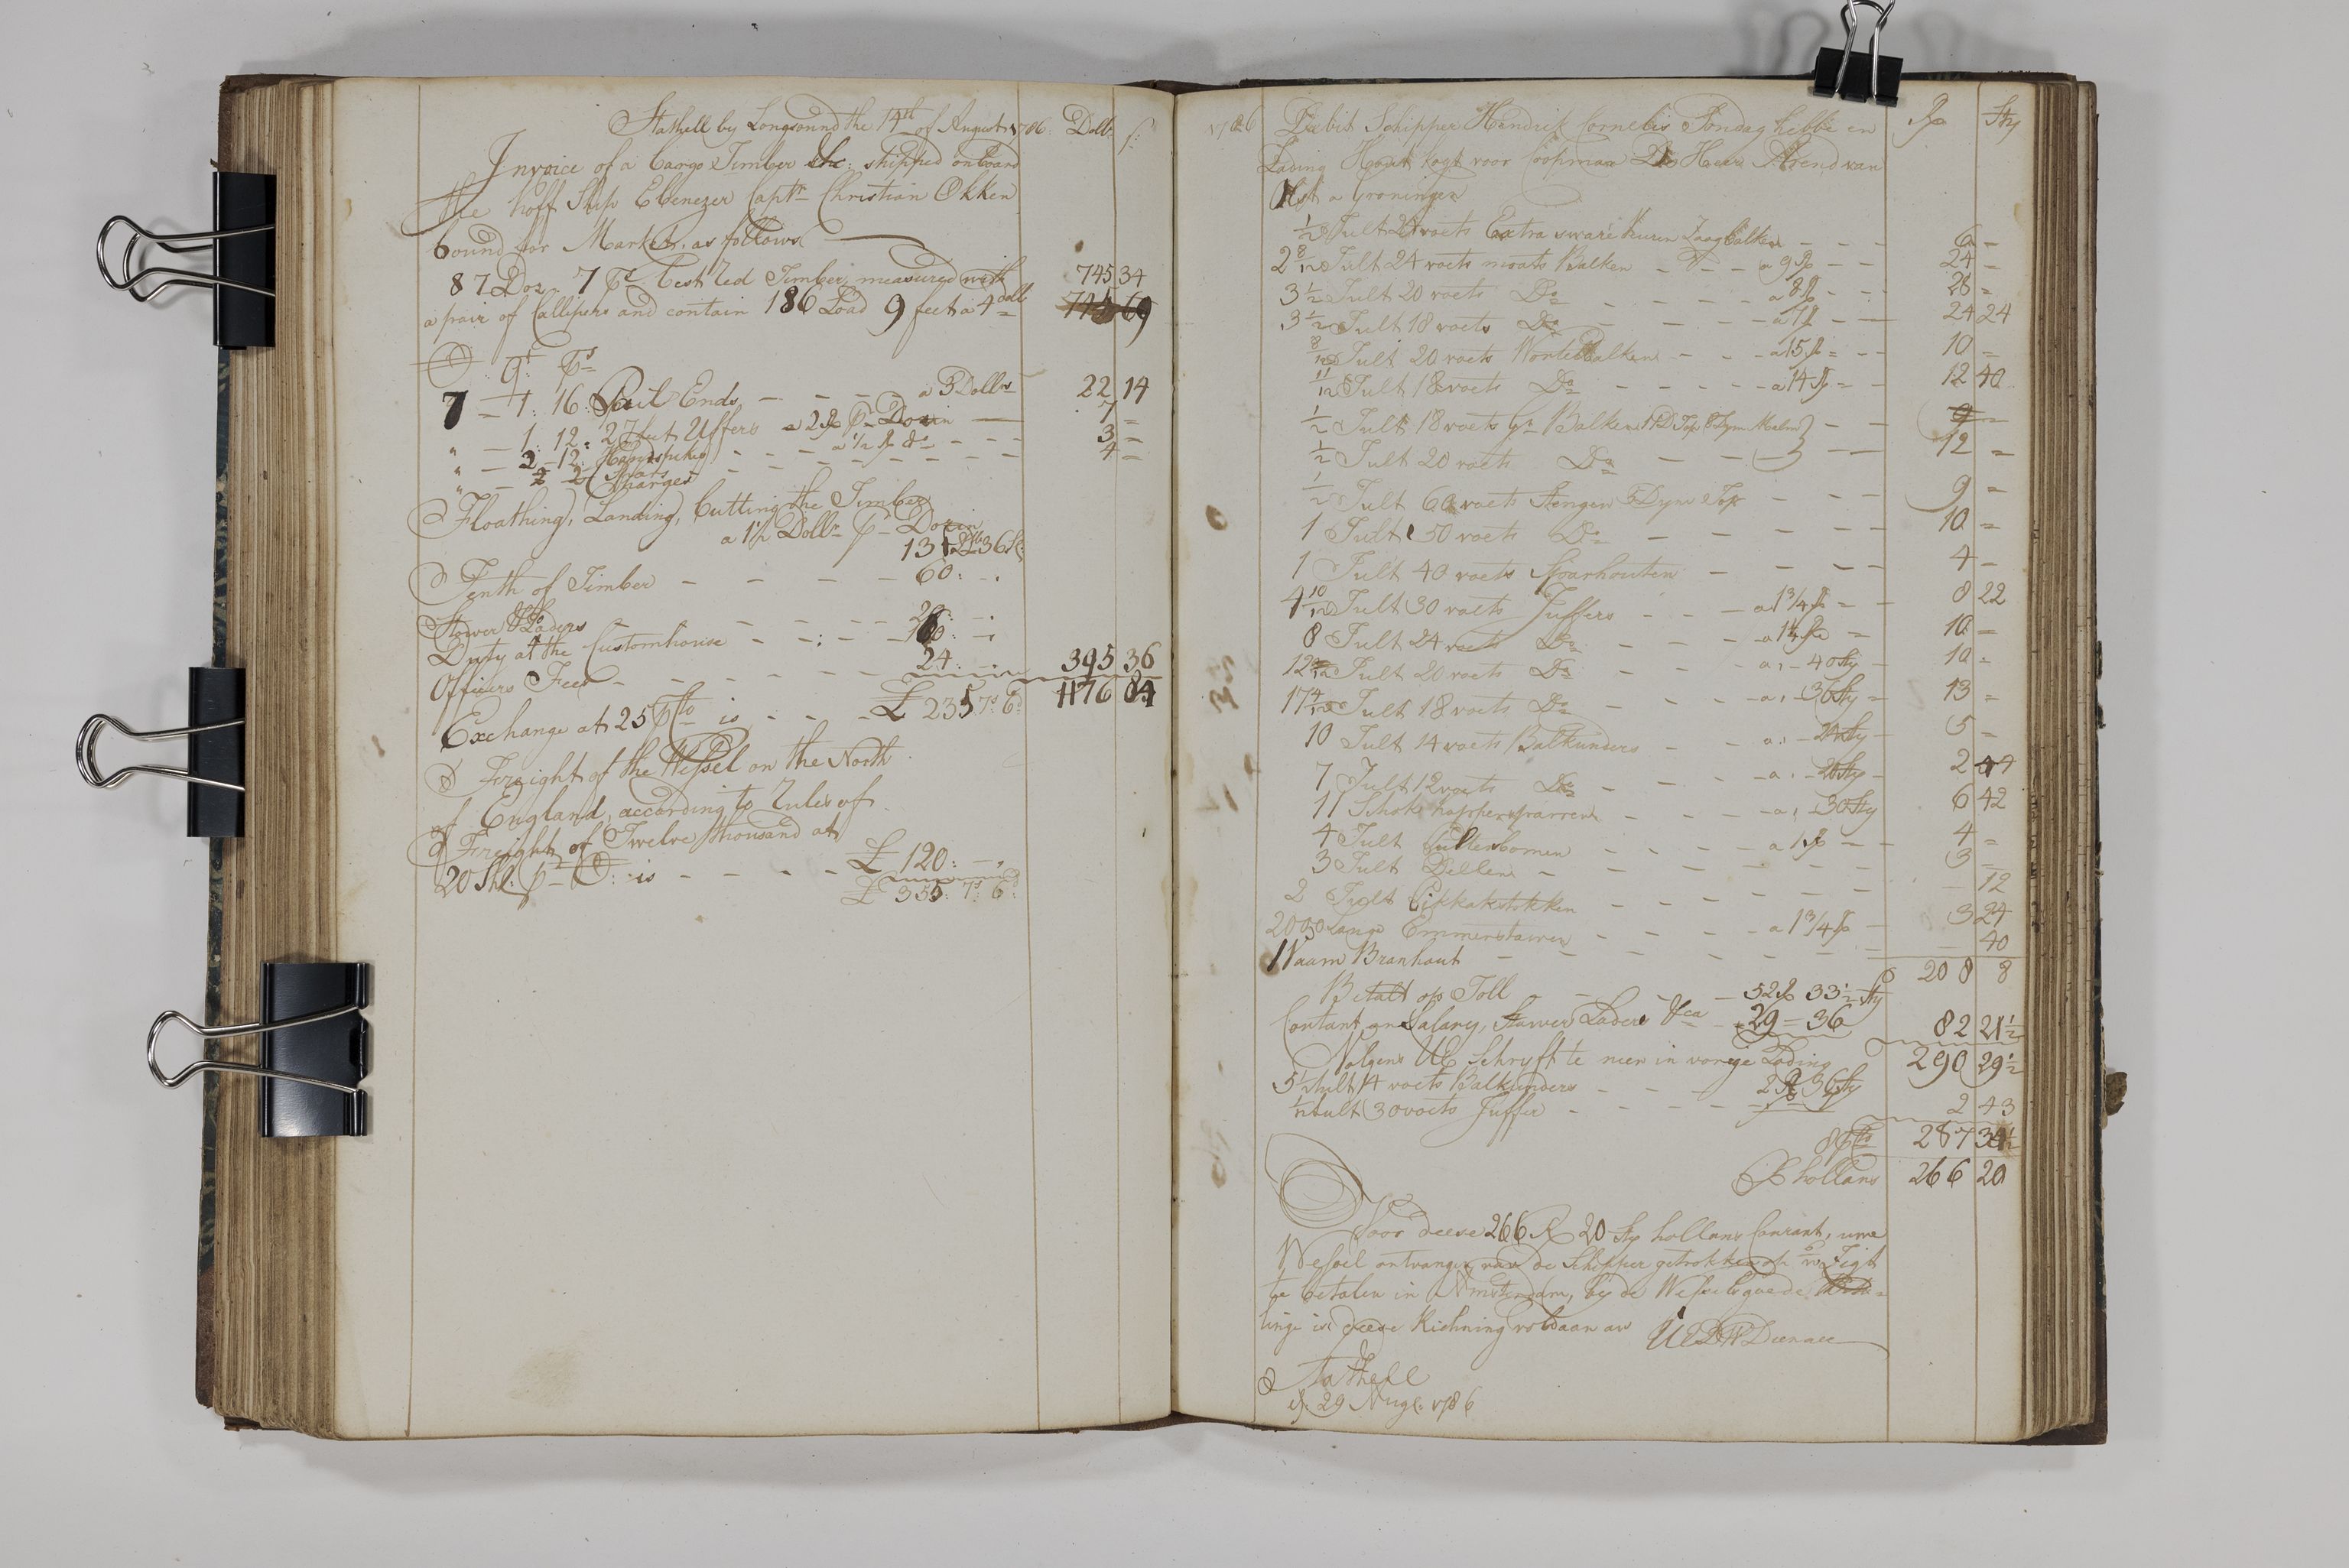 Stathell by Longsound the 14th of August 1786. Doll. s:
Invoice of a Cargo Timber &c: shipped onboard
the hoff Ship Ebenezer Captn Christian Okken
bound for Market, as follows
87 Doz. 7 Ps best red Timber, measured with 745 34
a pair of Callipers and contain 186 Load 9 feet a 4 doll
7 = 1: 16: Ends a 3 Dollrs 22 14
" — 1: 12: 27 feet Uffers a 2 Rd pr Dozin 7 =
" — 2 - 12: Handspikes a 1/2 Rd do 3 =
4 =
Charges
Floathing, Landing, Cutting the Timber
a 1 1/2 Dollr pr Dozin 131 36
Tenth of Timber 60: -.
Stower & Laders
Duty at the Customhouse
Officers Fees 24: -. 395 36
Exchange at 25 pCto is £ 235: 7s: 6d 1176 84
Freight of the Wessel on the North
of England, according to Rules of
Freight of Twelve thousand at
20 Shl: pr is £ 120: -.
£ 355: 7s: 6d
1786 Debit Schipper Hendrik Cornelis Sondag hebbe en Rd Sty
Lading Hout kogt voor Coopman De Heer Arend van
Olst a Groningen
1/2 Tult 24 voets Extra sware Kuren Zaagbalken 6 =
2 8/12 Tult 24 voets moats Balken a 9 Rd 24 =
3 1/2 Tult 20 voets Do a 8 Rd 28 =
3 1/2 Tult 18 voets Do a 7 Rd 24 24
8/12 Tult 20 voets Wortelbalken a 15 Rd 10 =
11/12 Tult 18 voets Do a 14 Rd 12 40
1/2 Tult 18 voets Balken
1/2 Tult 20 voets Do 12 =
1/2 Tult 60 voets Stengen 5 Dym Top 9 =
1 Tult 50 voets Do 10 =
1 Tult 40 voets Spaarhouten 4 =
4 10/12 Tult 30 voets Juffers a 1 3/4 Rd 8 22
8 Tult 24 voets Do a 1 1/4 Rd 10 =
12 Tult 20 voets Do a: - 40 Sty 10 =
17 4/12 Tult 18 voets Do a: - 36 Sty 13 =
10 Tult 14 voets Balkunders a: - 24 Sty 5 =
7 Tult 12 voets Do a: - 20 Sty 2 44
11 Schok happersparren a: - 30 Sty 6 42
4 Tult bomen a 1 Rd 4 =
3 Tult Dellen 3 =
2 Tult Pikhakstokken — 12
2000 Lange Emmerstaven a 1 3/4 Rd 3 24
1 Vaam Branhout — 40
208 8
Betalt op Toll 52 Rd 33 1/2 Sty
Contant an Salary, Stower Laders &ca 29 = 36 82 21 1/2
290 29 1/2
Volgens UE Schryft te meer in vorige Lading
5 1/2 tult 14 voets Balkunders 2 Rd 36 Sty
1/12 tult 30 voets Juffer 2 43
8 pCto 287 34 1/2
Rd hollans 266 20
Voor deese 266 Rd 20 Sty hollans Courant, une
Wessel ontvangen van de Schipper getrokken op Zigt
te betalen in Amsterdam, by de Wessels goede
linge is deese Richning voldaan an UEDW Dienaer
Stathell
d. 29 Aug. 1786